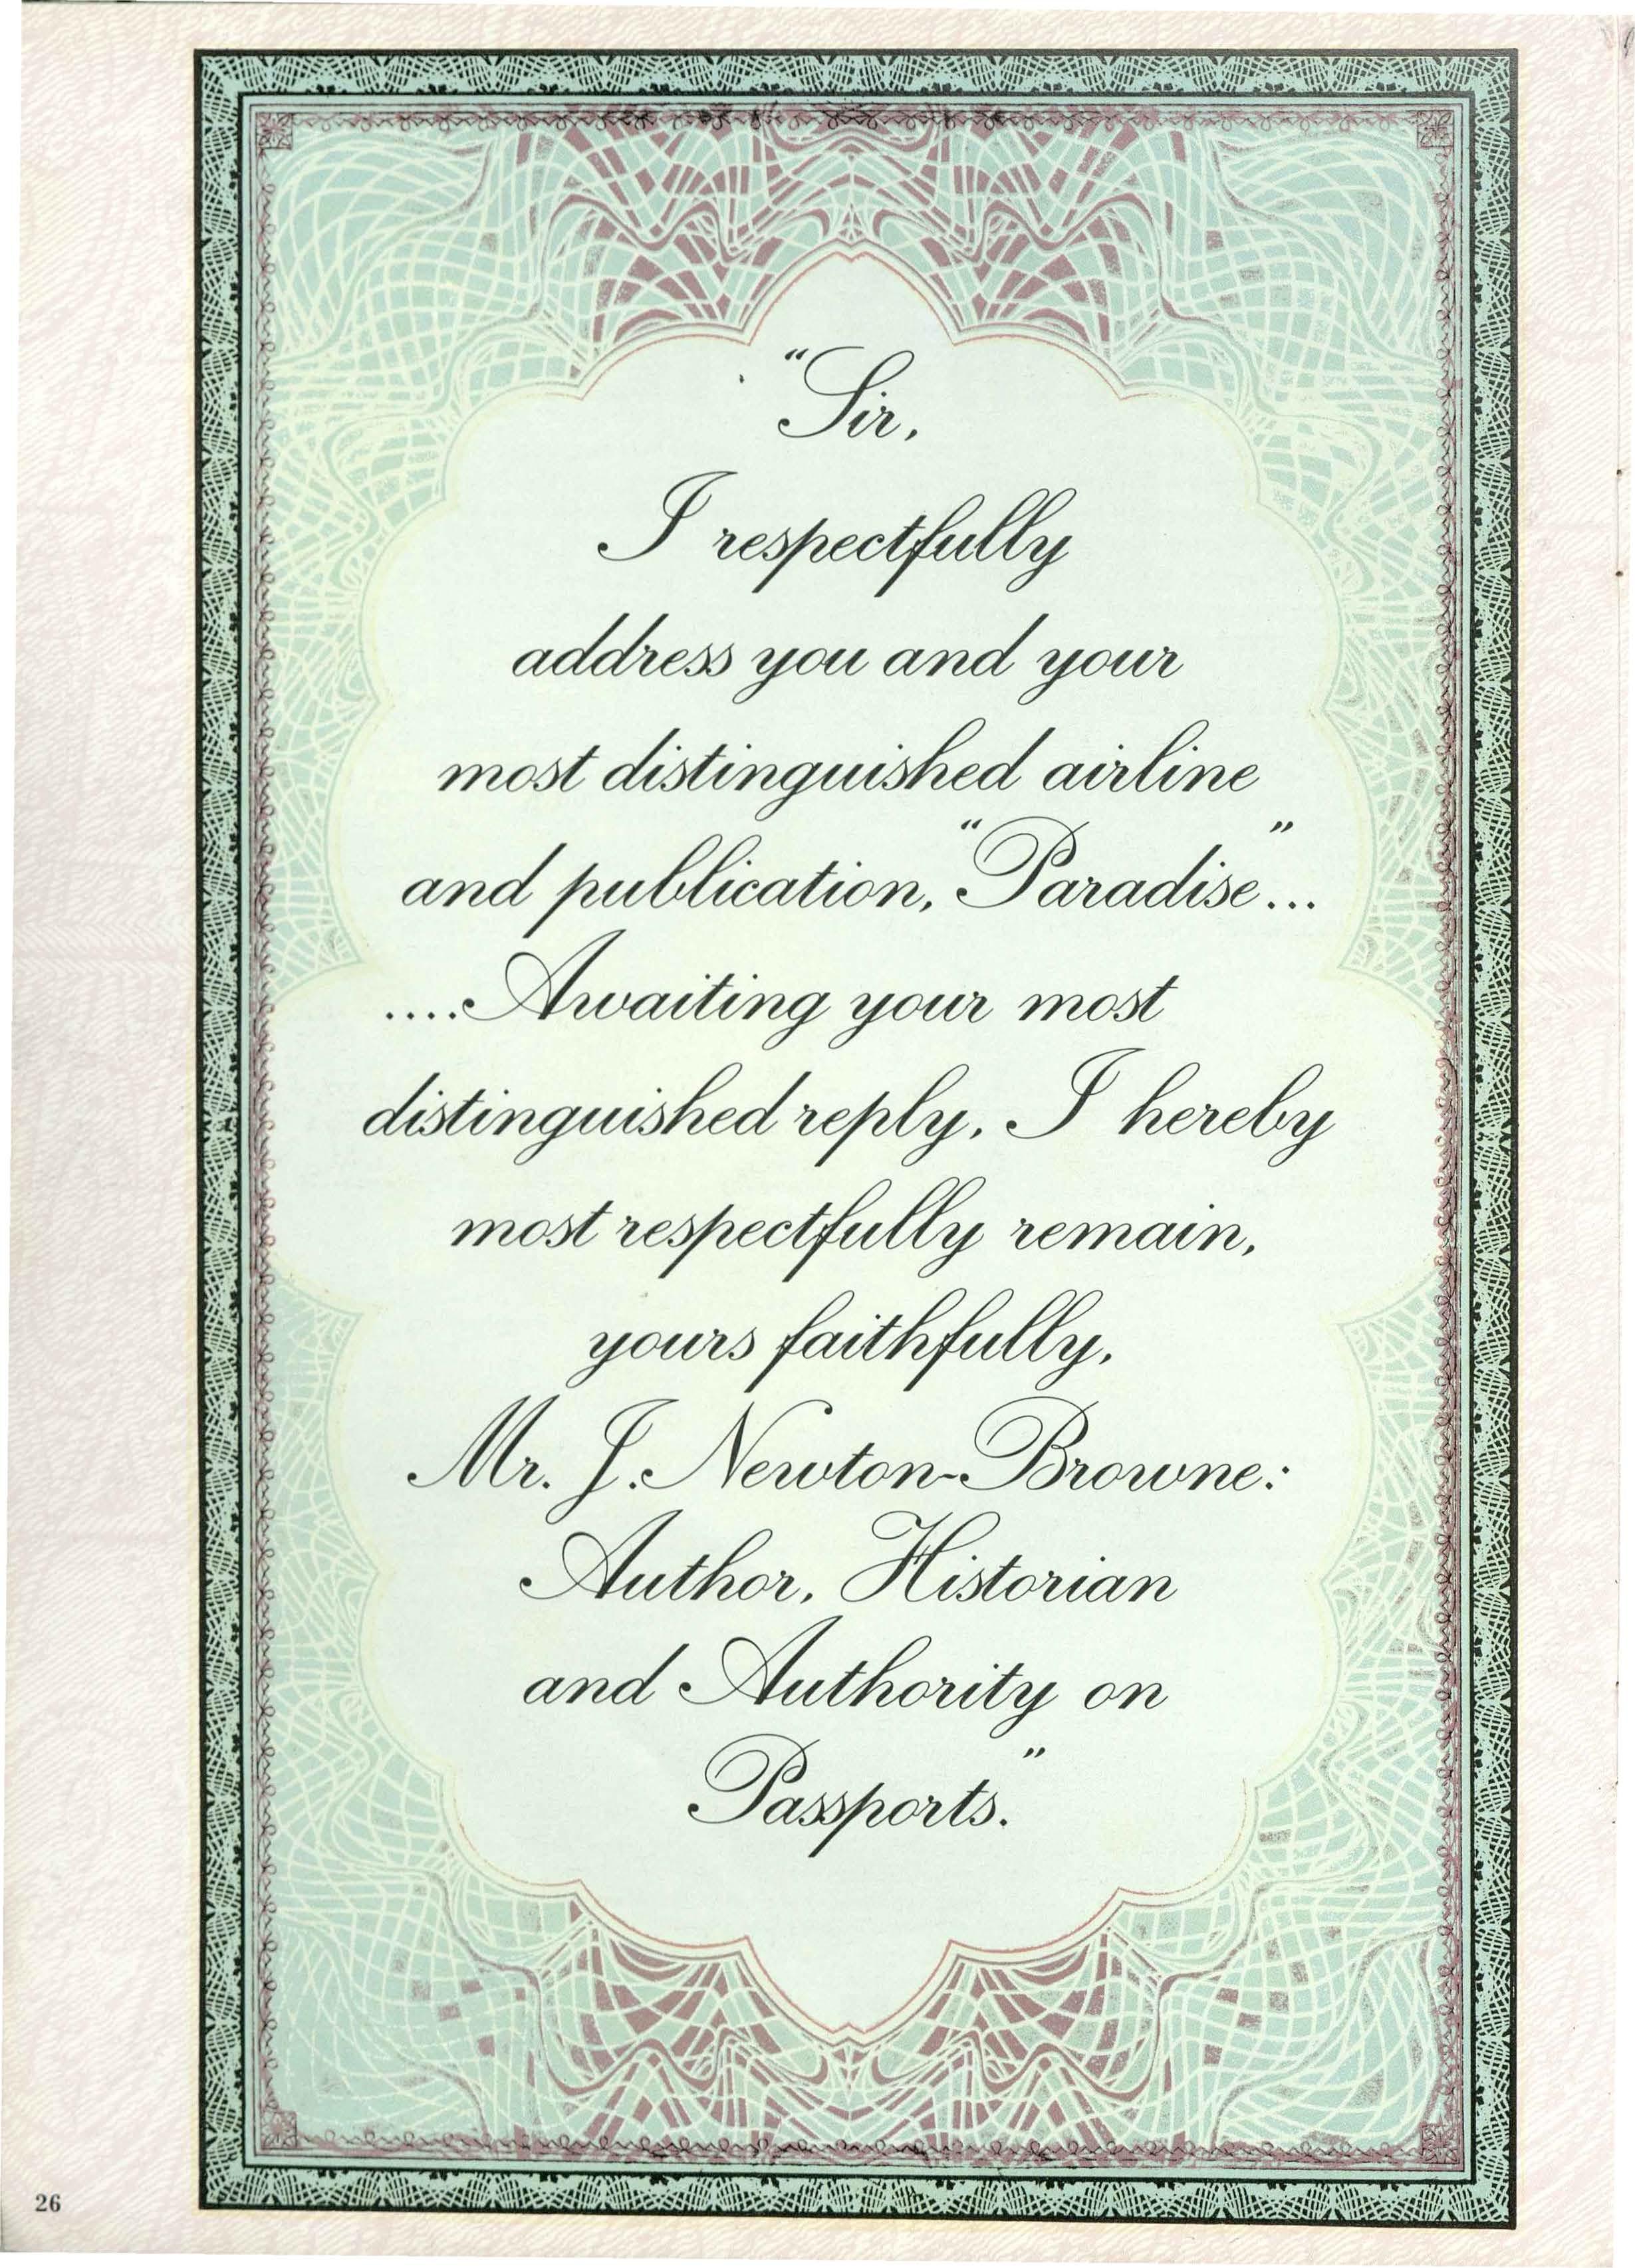 “Sir,
I respectfully
address you and your
most distinguished airline
and publication, “Paradise”...
....Awaiting your most
distinguished reply, I hereby
most respectfully remain,
yours faithfully,
Mr. J. Newton-Browne:
Author, Historian
and Authority on
Passports.”
26